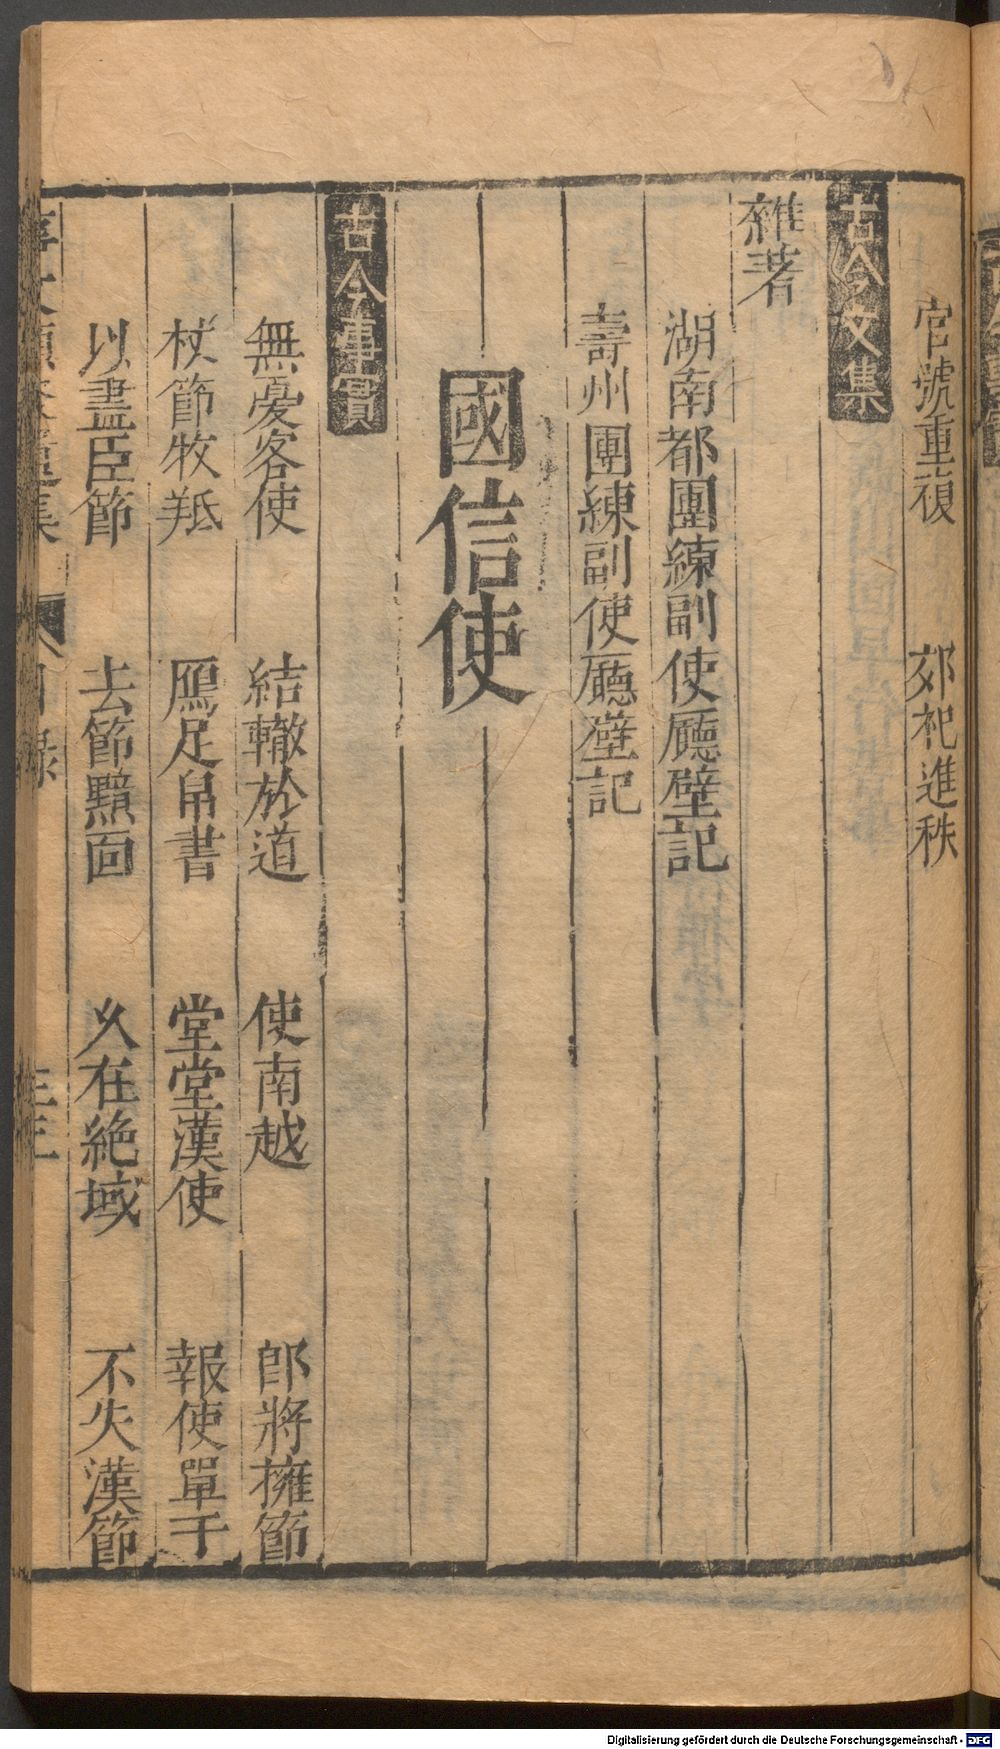 官號重複　郊祀進秩
古今文集
雜著
湖南都團練副使廳壁記
壽州團練副使廳壁記
國信使
古今事實
無憂客使　結轍於道　使南越　郎將擁節
杖節牧羝　鴈足帛書　堂堂漢使　報使單于
以盡臣節　去節黥面　久在絶域　不失漢節
Digitalisierung gefördert durch die Deutsche Forschungsgemeinschaft - DFG